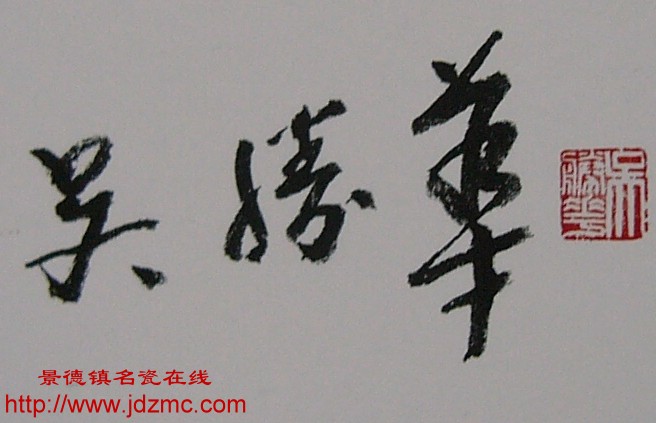 吴勝華
吴勝華
景德镇名瓷在线
http://www.jdzmc.com